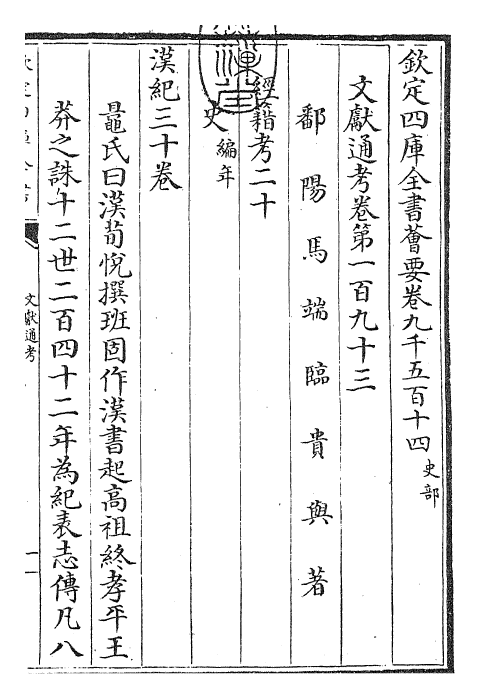 欽定四庫全書薈要卷九千五百十四 史部
文獻通考卷第一百九十三
鄱陽馬端臨貴與著
經籍考二十
史 編年
漢紀三十卷
鼂氏曰漢荀悅撰班固作漢書起高祖終孝平王
莽之誅十二世二百四十二年為紀表志傳凡八
文獻通考
一